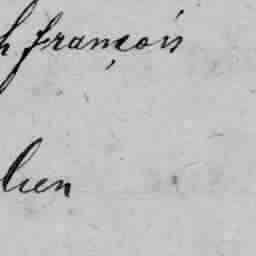 h françois
lien